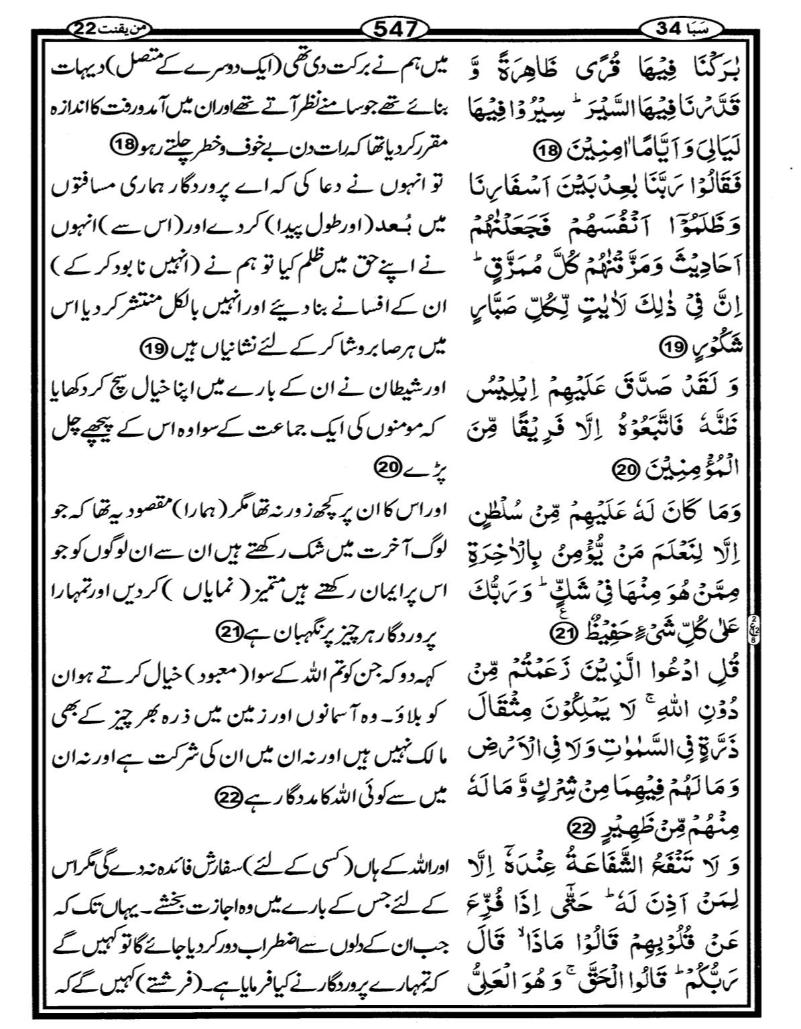 سَبَا 34
547
من یقنت 22
بٰرَكۡنَا فِيۡهَا قُرًى ظَاهِرَةً وَّ
قَدَّرۡنَا فِيۡهَا السَّيۡرَ ؕ سِيۡرُوۡا فِيۡهَا
لَيَالِىَ وَاَيَّامًا اٰمِنِيۡنَ 18
فَقَالُوۡا رَبَّنَا بٰعِدۡ بَيۡنَ اَسۡفَارِنَا
وَظَلَمُوۡۤا اَنۡفُسَهُمۡ فَجَعَلۡنٰهُمۡ
اَحَادِيۡثَ وَمَزَّقۡنٰهُمۡ كُلَّ مُمَزَّقٍ ؕ
اِنَّ فِىۡ ذٰلِكَ لَاٰيٰتٍ لِّكُلِّ صَبَّارٍ
شَكُوۡرٍ 19
وَ لَقَدۡ صَدَّقَ عَلَيۡهِمۡ اِبۡلِيۡسُ
ظَنَّهٗ فَاتَّبَعُوۡهُ اِلَّا فَرِيۡقًا مِّنَ
الۡمُؤۡمِنِيۡنَ 20
وَمَا كَانَ لَهٗ عَلَيۡهِمۡ مِّنۡ سُلۡطٰنٍ
اِلَّا لِنَعۡلَمَ مَنۡ يُّؤۡمِنُ بِالۡاٰخِرَةِ
مِمَّنۡ هُوَ مِنۡهَا فِىۡ شَكٍّ ؕ وَرَبُّكَ
عَلٰى كُلِّ شَىۡءٍ حَفِيۡظٌ 21
قُلِ ادۡعُوا الَّذِيۡنَ زَعَمۡتُمۡ مِّنۡ
دُوۡنِ اللّٰهِ ۚ لَا يَمۡلِكُوۡنَ مِثۡقَالَ
ذَرَّةٍ فِى السَّمٰوٰتِ وَلَا فِى الۡاَرۡضِ
وَمَا لَهُمۡ فِيۡهِمَا مِنۡ شِرۡكٍ وَّمَا لَهٗ
مِنۡهُمۡ مِّنۡ ظَهِيۡرٍ 22
وَ لَا تَنۡفَعُ الشَّفَاعَةُ عِنۡدَهٗۤ اِلَّا
لِمَنۡ اَذِنَ لَهٗ ؕ حَتّٰٓى اِذَا فُزِّعَ
عَنۡ قُلُوۡبِهِمۡ قَالُوۡا مَاذَا ۙ قَالَ
رَبُّكُمۡ ؕ قَالُوا الۡحَقَّ ۚ وَهُوَ الۡعَلِىُّ
میں ہم نے برکت دی تھی (ایک دوسرے کے متصل) دیہات
بنائے تھے جو سامنے نظر آتے تھے اور ان میں آمد ورفت کا اندازہ
مقرر کر دیا تھا کہ رات دن بے خوف و خطر چلتے رہو 18
تو انہوں نے دعا کی کہ اے پروردگار ہماری مسافتوں
میں بُعد (اور طول پیدا) کر دے اور (اس سے) انہوں
نے اپنے حق میں ظلم کیا تو ہم نے (انہیں نابود کر کے)
ان کے افسانے بنا دیئے اور انہیں بالکل منتشر کر دیا اس
میں ہر صابر و شاکر کے لئے نشانیاں ہیں 19
اور شیطان نے ان کے بارے میں اپنا خیال سچ کر دکھایا
کہ مومنوں کی ایک جماعت کے سوا وہ اس کے پیچھے چل
پڑے 20
اور اس کا ان پر کچھ زور نہ تھا مگر (ہمارا) مقصود یہ تھا کہ جو
لوگ آخرت میں شک رکھتے ہیں ان سے ان لوگوں کو جو
اس پر ایمان رکھتے ہیں متمیز (نمایاں) کر دیں اور تمہارا
پروردگار ہر چیز پر نگہبان ہے 21
کہہ دو کہ جن کو تم اللہ کے سوا (معبود) خیال کرتے ہو ان
کو بلاؤ۔ وہ آسمانوں اور زمین میں ذرہ بھر چیز کے بھی
مالک نہیں ہیں اور نہ ان میں ان کی شرکت ہے اور نہ ان
میں سے کوئی اللہ کا مددگار ہے 22
اور اللہ کے ہاں (کسی کے لئے) سفارش فائدہ نہ دے گی مگر اس
کے لئے جس کے بارے میں وہ اجازت بخشے۔ یہاں تک کہ
جب ان کے دلوں سے اضطراب دور کر دیا جائے گا تو کہیں گے
کہ تمہارے پروردگار نے کیا فرمایا ہے۔ (فرشتے) کہیں گے کہ